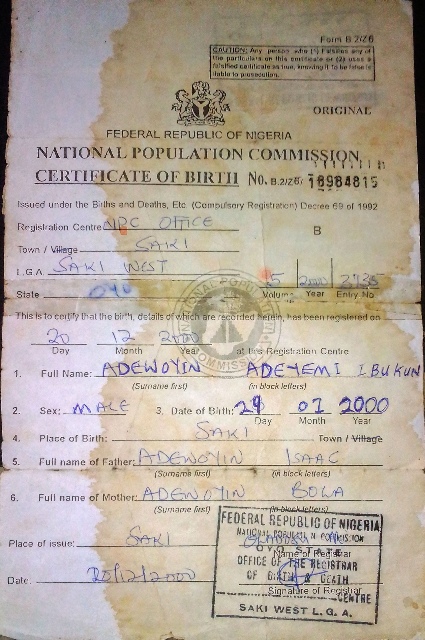 Form B 2/Z6
CAUTION: Any person who (1) Falsifies any of
the particulars on this certificate or (2) uses a
falsified certificate as true, knowing it to be false is
liable to prosecution.
ORIGINAL
FEDERAL REPUBLIC OF NIGERIA
NATIONAL POPULATION COMMISSION
CERTIFICATE OF BIRTH No. B.2/Z6/ 16984815
Issued under the Births and Deaths, Etc (Compulsory Registration) Decree 69 of 1992
Registration Centre NPC OFFICE B
Town / Village SAKI
L.G.A SAKI WEST 5 2000 3735
State OYO Volume Year Entry No
This is to certify that the birth, details of which are recorded herein, has been registered on
20 12 2000
Day Month Year at this Registration Centre
1. Full Name: ADEWOYIN ADEYEMI IBUKUN
(Surname first) (in block letters)
2. Sex: MALE 3. Date of Birth: 29 07 2000
Day Month Year
4. Place of Birth: SAKI Town / Village
5. Full name of Father: ADEWOYIN ISAAC
(Surname first) (in block letters)
6. Full name of Mother: ADEWOYIN BOLA
(Surname first) (in block letters)
Place of issue: SAKI
Name of Registrar
Date: 20/12/2000
Signature of Registrar
FEDERAL REPUBLIC OF NIGERIA
NATIONAL POPULATION COMMISSION
OYO STATE
OFFICE OF THE REGISTRAR
OF BIRTH & DEATH
CENTRE
SAKI WEST L.G.A.